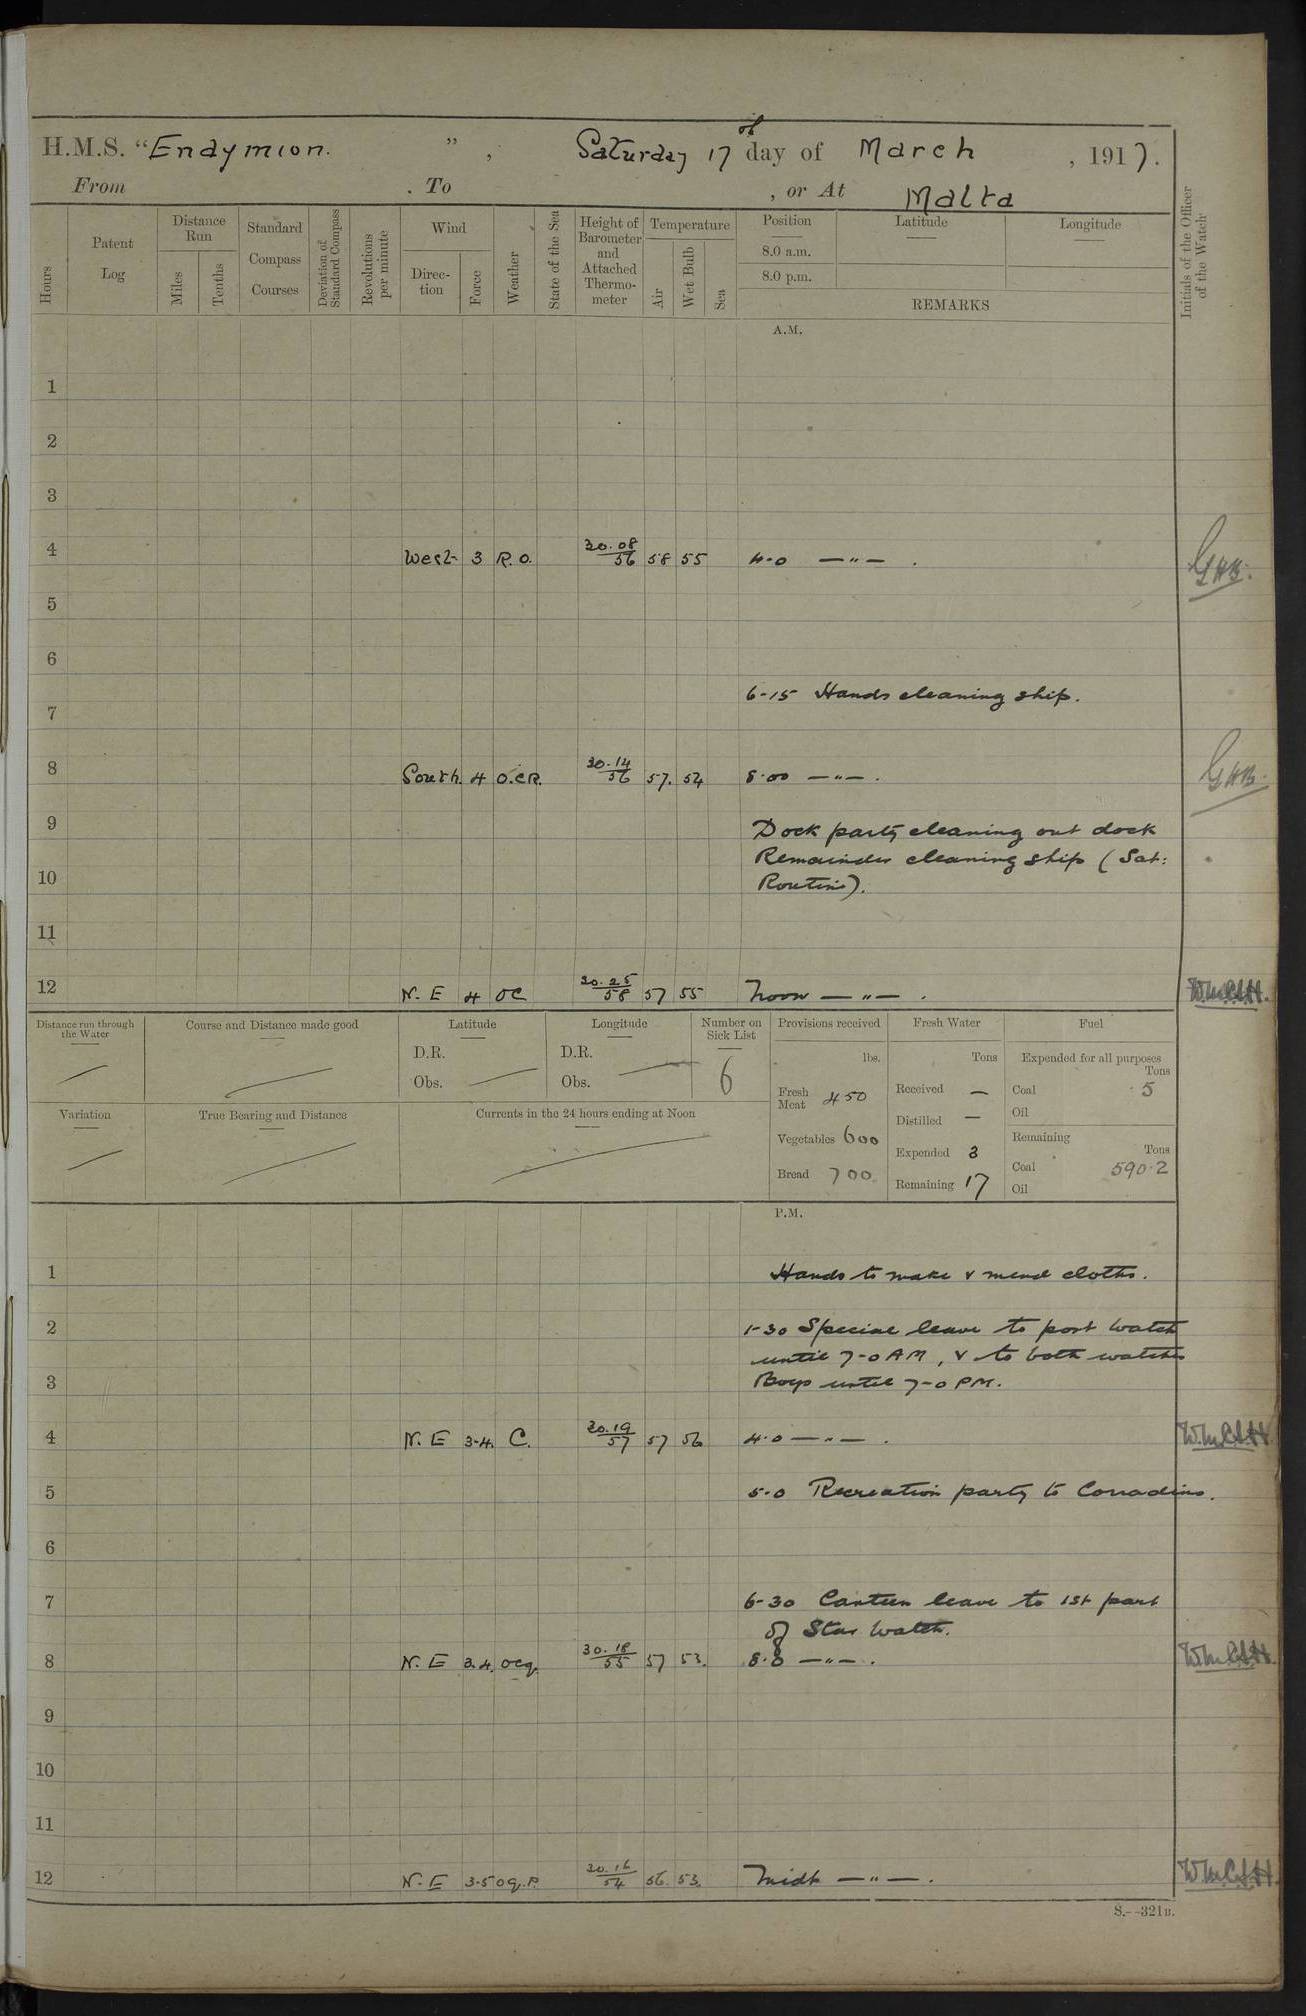 H.M.S. "Endymion.", Saturday 17 day of March, 1917.
From . To , or At Malta
Hours
Patent Log
Distance Run
Miles
Tenths
Standard Compass Courses
Deviation of Standard Compass
Revolutions per minute
Wind
Direction
Force
Weather
State of the Sea
Height of Barometer and Attached Thermometer
Temperature
Air
Wet Bulb
Sea
Position
8.0 a.m.
8.0 p.m.
Latitude
Longitude
REMARKS
Initials of the Officer of the Watch
A.M.
1
2
3
4 West 3 R.O. 30.08 56 58 55 4.0 —"— .
5
6
6-15 Hands cleaning ship.
7
8 South. 4 O.C.R. 30.14 56 57. 54 8.00 —"— .
9 Dock party cleaning out dock
Remainder cleaning ship (Sat:
10 Routine).
11
12 N.E 4 OC 30.25 58 57 55 Noon —"— .
Distance run through the Water
Course and Distance made good
Latitude
D.R.
Obs.
Longitude
D.R.
Obs.
Number on Sick List
6
Provisions received
lbs.
Fresh Meat 450
Vegetables 600
Bread 700
Fresh Water
Tons
Received —
Distilled —
Expended 3
Remaining 17
Fuel
Expended for all purposes
Tons
Coal 5
Oil
Remaining
Tons
Coal 590.2
Oil
Variation
True Bearing and Distance
Currents in the 24 hours ending at Noon
P.M.
1 Hands to make & mend cloths.
2 1-30 Special leave to port watch
until 7-0 AM, & to both watches
3 Boys until 7-0 PM.
4 N.E 3-4. C. 30.19 57 57 56 4.0 —"— .
5 5.0 Recreation party to Corradino.
6
7 6-30 Canteen leave to 1st part
of Star Watch.
8 N.E 3.4. ocq. 30.18 55 57 53. 8.0 —"— .
9
10
11
12 N.E 3-5 o.q.p. 30.16 54 56. 53. Midt —"— .
S.—321B.